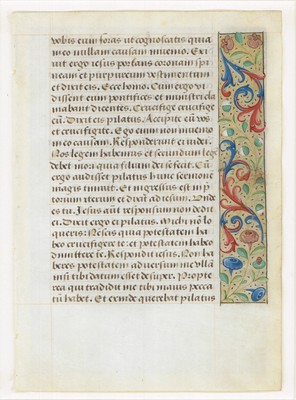 vobis eum foras ut cognoscatis quia
in eo nullam causam invenio. Ex
ivit ergo iesus portans coronam spi
neam et purpureum vestimentum
et dicit eis. Ecce homo. Cum ergo vi
dissent eum pontifices et ministri cla
mabant dicentes. Crucifige crucifige
eū. Dicit eis pilatus. Accipite eū vos
et crucifigite. Ego enim non invenio
in eo causam. Responderūt ei iudei.
Nos legem habemus et secundum lege
debet mori quia filium dei se fecit. Cū
ergo audisset pilatus hunc sermone
magis timuit. Et ingressus est in p̄
torium iterum et dixit ad iesum. Unde
es tu. Iesus aūt responsum non dedit
ei. Dicit ergo ei pilatus. Michi no lo
queris: Nescis quia potestatem ha
beo crucifigere te: et potestatem habeo
dimittere te. Respondit iesus. Non ha
beres potestatem adversum me ullā
nisi tibi datum esset desuper. Propte
rea qui tradidit me tibi maius pecca
tū habet. Et exinde querebat pilatus